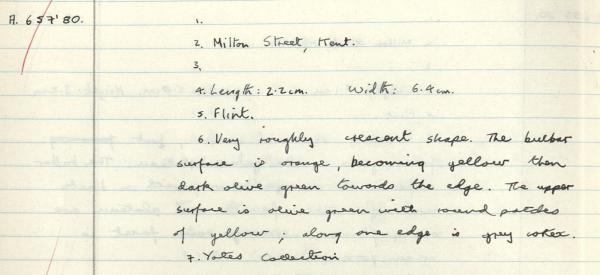 A. 657'80.
1.
2. Milton Street, Kent.
3.
4. Length: 2.2cm. Width: 6.4cm.
5. Flint.
6. Very roughly crescent shape. The bulbar
surface is orange, becoming yellow then
dark olive green towards the edge. The upper
surface is olive green with round patches
of yellow; along one edge is grey cortex.
7. Yates Collection